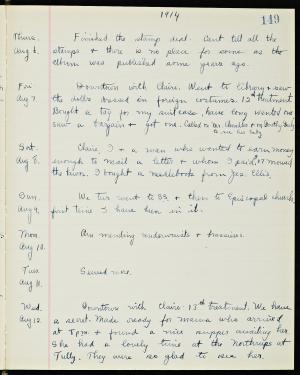 1914
149
Thurs. Finished the stamp deal. Can't sell all the
Aug 6. stamps & there is no place for some as the
album was published some years ago.
Fri Downtown with Claire. Went to library & saw
Aug 7. the dolls dressed in foreign costumes. 12th treatment
Bought a tag for my suit case, have long wanted one
saw a bargain & got one. Called on
to see her baby
Sat. Claire, I & a man who wanted to earn money
Aug 8. enough to mail a letter & whom I paid, moved
the . I bought a needlebook from Jes. Ellis.
Sun. We two went to SS. & then to Episcopal church
Aug 9. first time I have been in it.
Mon Am mending underwaists &
Aug 10.
Tues Sewed more.
Aug 11.
Wed Downtown with Claire. 13th treatment. We have
Aug 12. a secret. Made ready for mama who arrived
at 8 pm. & found a nice supper awaiting her.
She had a lovely time at the Northrups at
Tully. They were so glad to see her.